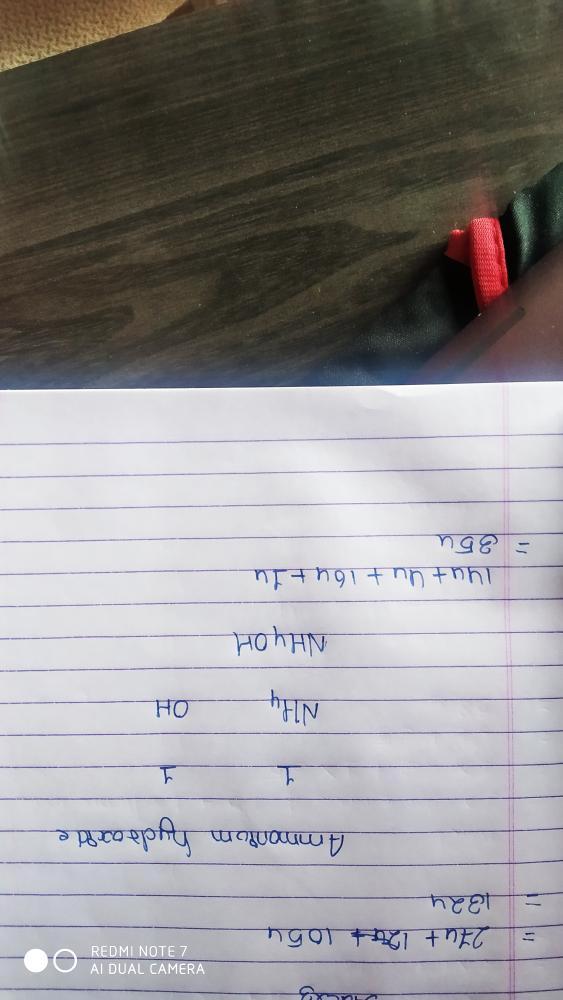 = 27u + 105u
= 132u
Ammoniom hydroxide
1 1
NH4 OH
NH4OH
14u + 4u + 16u + 1u
= 35u
REDMI NOTE 7
AI DUAL CAMERA